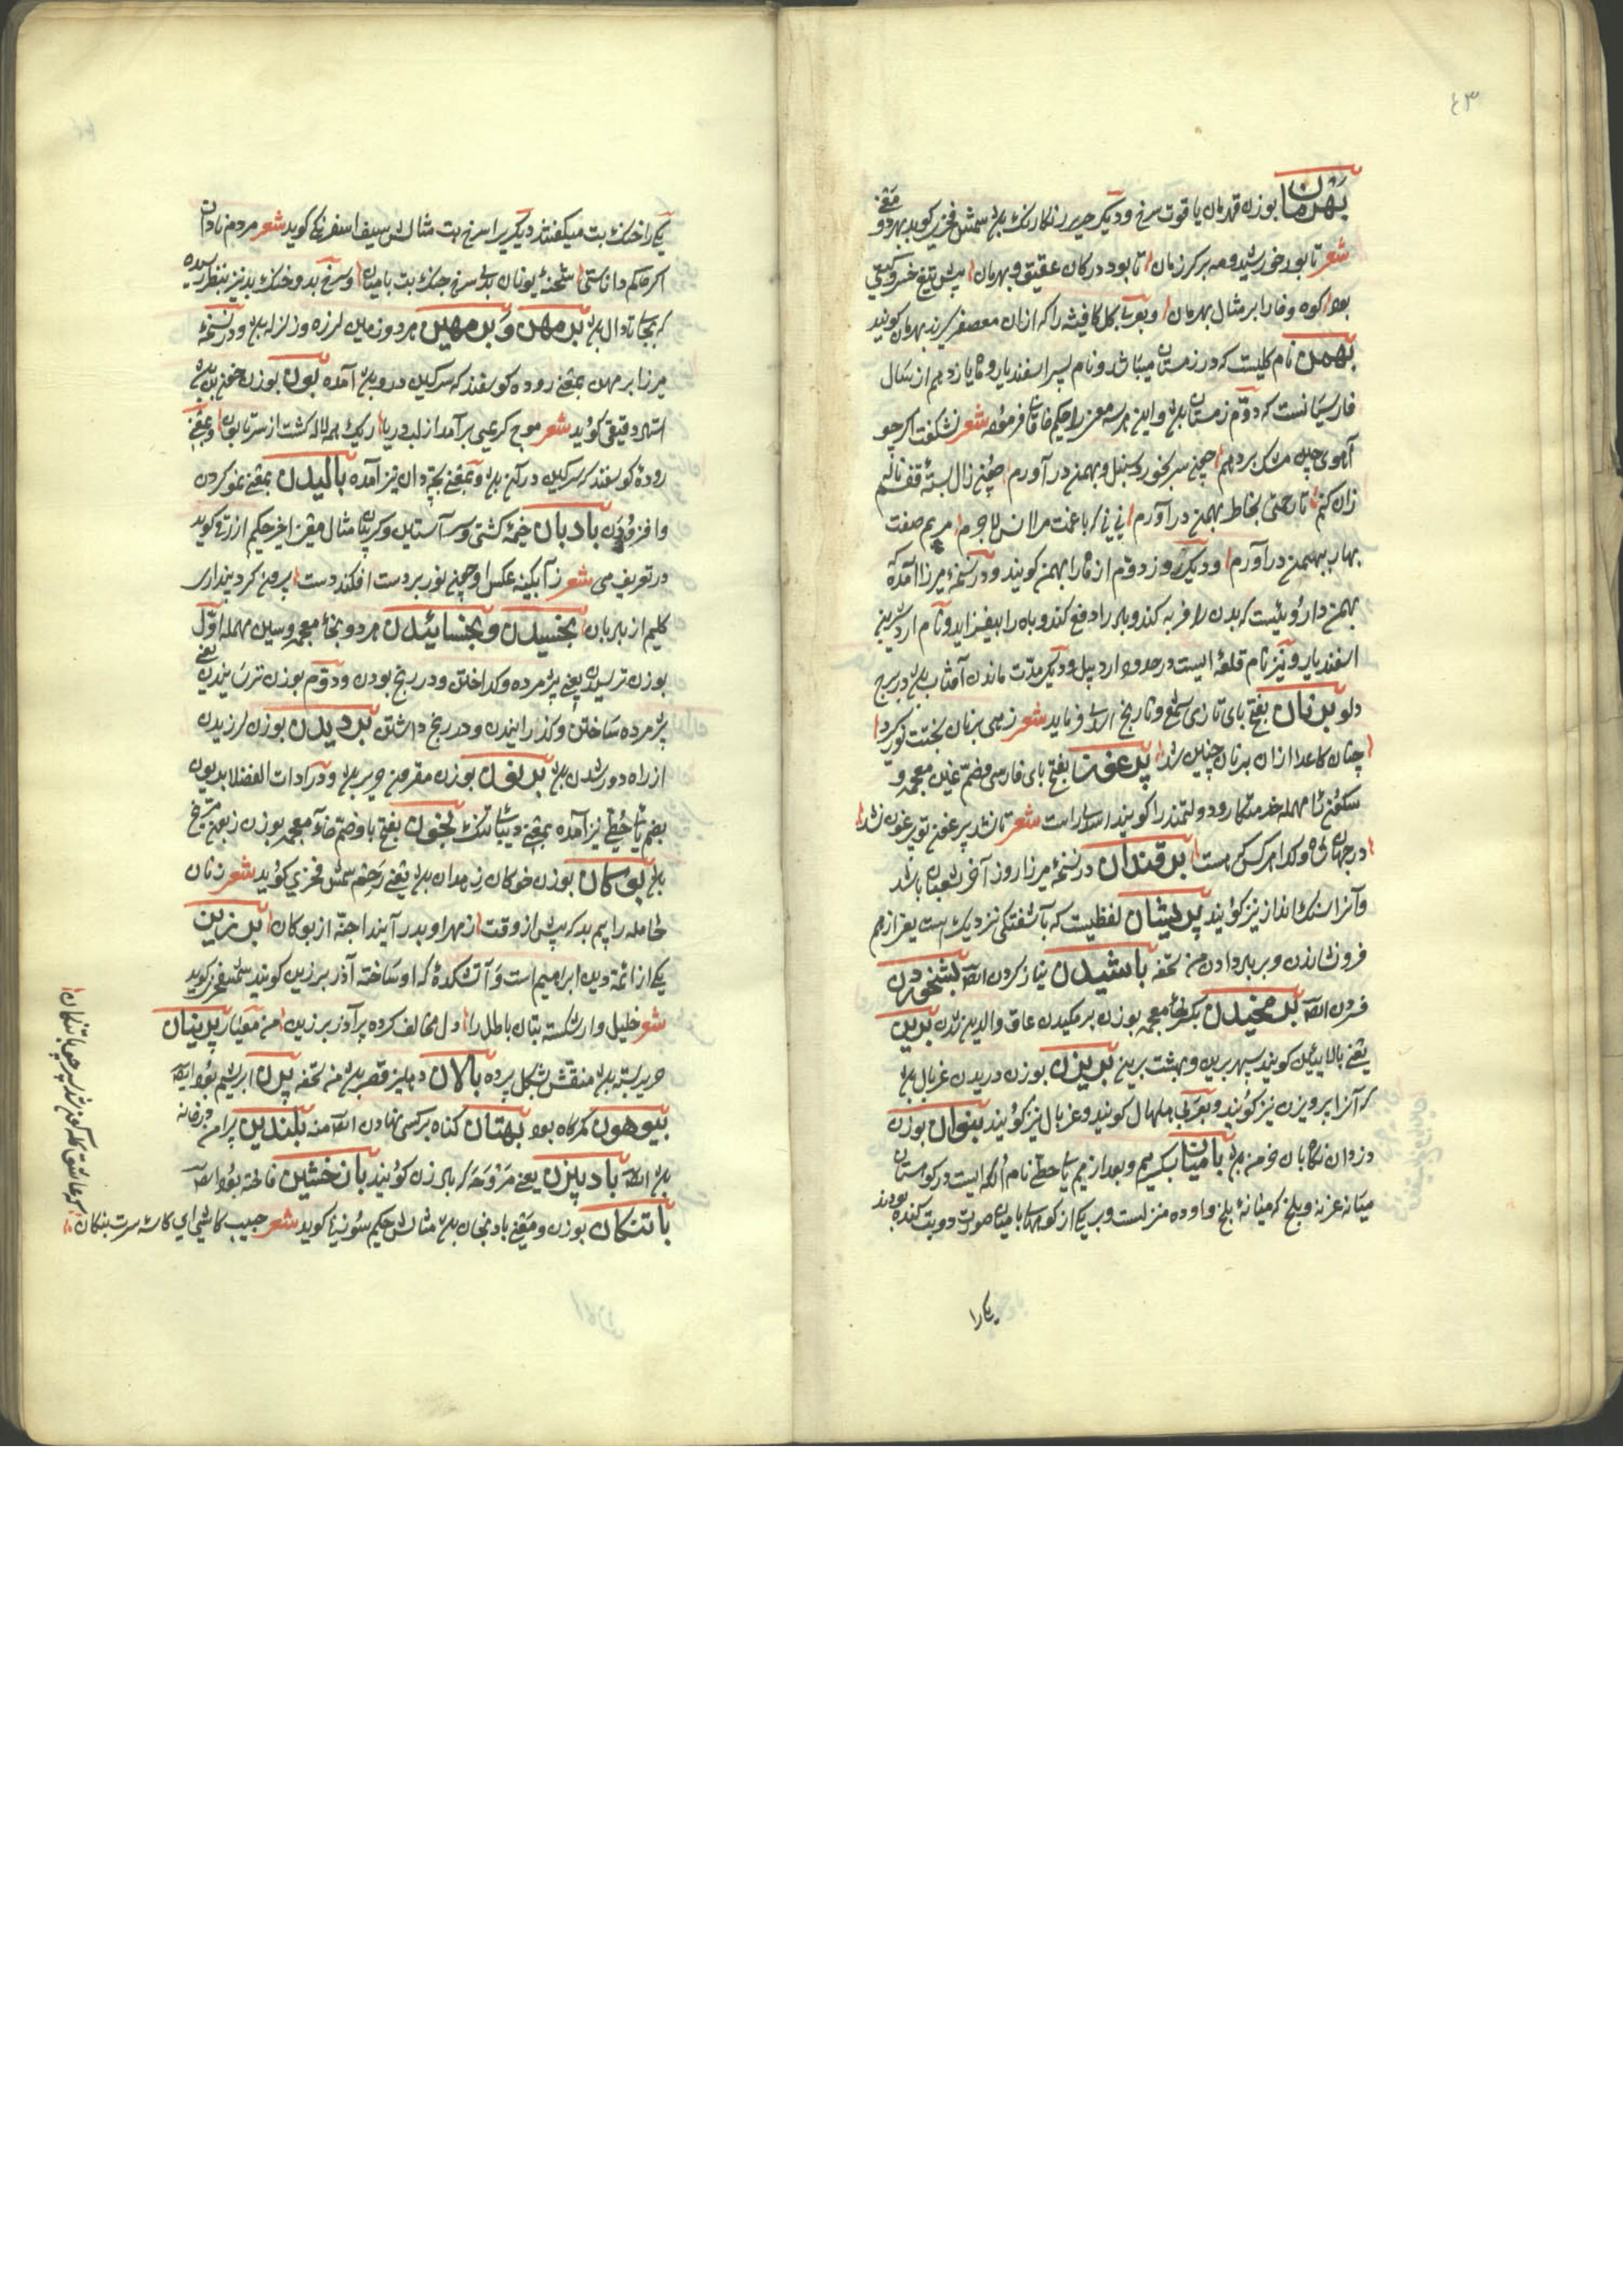 ٤٣
بهرمان بوزن قهرمان یاقوت سرخ و دیگر حریر رنگارنگ بود شمس فخری گوید بهر دو معنی
شعر تا بود خورشید و مه بر کرزمان تا بود در کان عقیق و بهرمان پیش تیغ خسرو گیتی
بود کوه و خارا بر مثال بهرمان و بعربی گل کافیشه را که ازان معصفر گیرند بهرمان گویند
بهمن نام گلیست که در زمستان میباشد و نام پسر اسفندیار و ماه یازدهم از سال
فارسیانست که دوم زمستان بود و این هر سه معنی را حکیم خاقانی فرموده شعر نشکفت اگر چو
آهوی چین مشک بر دهم چون سر بخورد سنبل و بهمن در آورم چون زال بسته قفسم ناله
زان کنم تا رحمتی بخاطر بهمن در آورم نی نی که با غمت مرا انس لاجرم مریم صفت
بهار ببهمن در آورم و دیگر روز دوم از ماه را بهمن گویند و در نسخهٔ میرزا آمده که
بهمن داروئیست که بدن را فربه کند و باد را دفع کند و باه را بیفزاید و نام اردشیر بن
اسفندیار و نیز نام قلعه ایست در حدود اردبیل و دیگر مدت ماندن آفتاب بود در برج
دلو برنان بفتح بای تازی شمع و تاریخ فرماید شعر زهی برنان بختت
چنان کاعدا ازان برنان چنین شد پرغون بفتح بای فارسی و ضم غین معجمه و
سکون مهمله خدمتکار و دولتمند را گویند استاد راست شعر تا نشد پرغون تو پرغون نشد
در جهان شاه و گدا هر کس که هست برقندان در نسخهٔ میرزا روز آخر شعبان باشد
و آنرا سنک انداز نیز گویند پریشان لفظیست که بآشفتگی نزدیک است یعنی از هم
فرو نشاندن و بر باد دادن من تحفه باشیدن نیاز کردن بشنجیدن
فردن بر مخیدن بکسر خاء معجمه بوزن بر مکیدن عاق والدین شدن برین
یعنی بالایین گویند سپهر برین و بهشت برین پریزن بوزن دریدن غربال بود
که آنرا پرویزن نیز گویند و بعربی هلهال گویند و غربال نیز گویند بنوان بوزن
دزدان نگاهبان خرمن بود بامیان بکسر میم و بعد از میم یاء حطی نام الکه ایست در کوهستان
میانه غزنه و بلخ که میانهٔ بلخ و او ده منزلست و بر یکی از کوههای بامیان صورت دو بت کنده بودند
یکی را
یکی را خنک بت میگفتند دیگری را سرخ بت مثالش سیف اسفرنگی گوید شعر مردم نادان
اگر حاکم داناستی شحنهٔ یونان بدی سرخ خنک بت بامیان و سرخ بد و خنک بد نیز بنظر رسیده
که بجای تا دال بود برمهن و برمهین هر دو زمین لرزه و زلزله بود و در نسخهٔ
میرزا برمهن بمعنی رودهٔ گوسفند که سرگین درو بود آمده بون بوزن خون بن
استاد دقیقی گوید شعر موج کریمی برآمد از لب دریا ریگ همه لاله گشت از سر تا بون و بمعنی
رودهٔ گوسفند که سرگین در آن بود و بمعنی بچه دان نیز آمده بالیدن بمعنی نمو کردن
و افزودن بادبان خیمهٔ کشتی و سر آستین و گریبان مثال معنی اخیر حکیم ازرقی گوید
در تعریف می شعر ز آبگینه عکس او چون نور بر دست افکند دست بیرون کرد پنداری
کلیم از بادبان بخسیدن و بخسانیدن هر دو بخاء معجمه و سین مهمله اول
بوزن ترسیدن یعنی پژمرده و گداختن و در رنج بودن و دوم بوزن ترسانیدن یعنی
پژمرده ساختن و گدازانیدن و در رنج داشتن بردیدن بوزن لرزیدن
از راه دور شدن بود بریون بوزن مقرون حریر بود و در ادات الفضلا بدیون
بضم یاء حطی نیز آمده بمعنی دیبای تنک بخون بفتح با و ضم خاء معجمه بوزن زبون مریخ
بود بوکان بوزن خوکان زهدان بود یعنی رحم شمس فخری گوید شعر زنان
حامله را بیم بد که پیش از وقت ز مهر او بدر آیند اجنه از بوکان برزین
یکی از ائمهٔ دین ابراهیم است و آتشکدهٔ که او ساخته آذر برزین گویند شمس فخری گوید
شعر خلیل وار شکسته بتان باطل را دل مخالف کرده پر آذر برزین من معیار پرنیان
حریر بسته بود منقش بشکل پرده بالان دهلیز قصر بود من تحفه پرن ابریشم بود
بیوهون گمرگاه بود بهتان گناه بر کسی نهادن منه بلندین پیرامن در خانه
بود بادبیزن یعنی مروحه که باد زن گویند بان خشین فاخته بود
باتنکان بوزن و معنی بادنجان بود مثالش حکیم سوزنی گوید شعر حبیب کاشی ای کاشه سرت بنکان